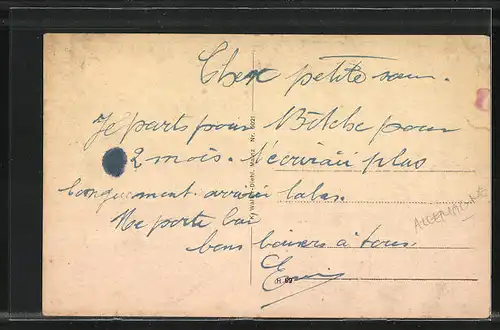 Chere petite sœur.
Je parts pour Bitche pour
2 mois. t'écrirai plus
longuement arrivé labas.
Me porte bien
bons baisers à tous
ALLEMAGNE